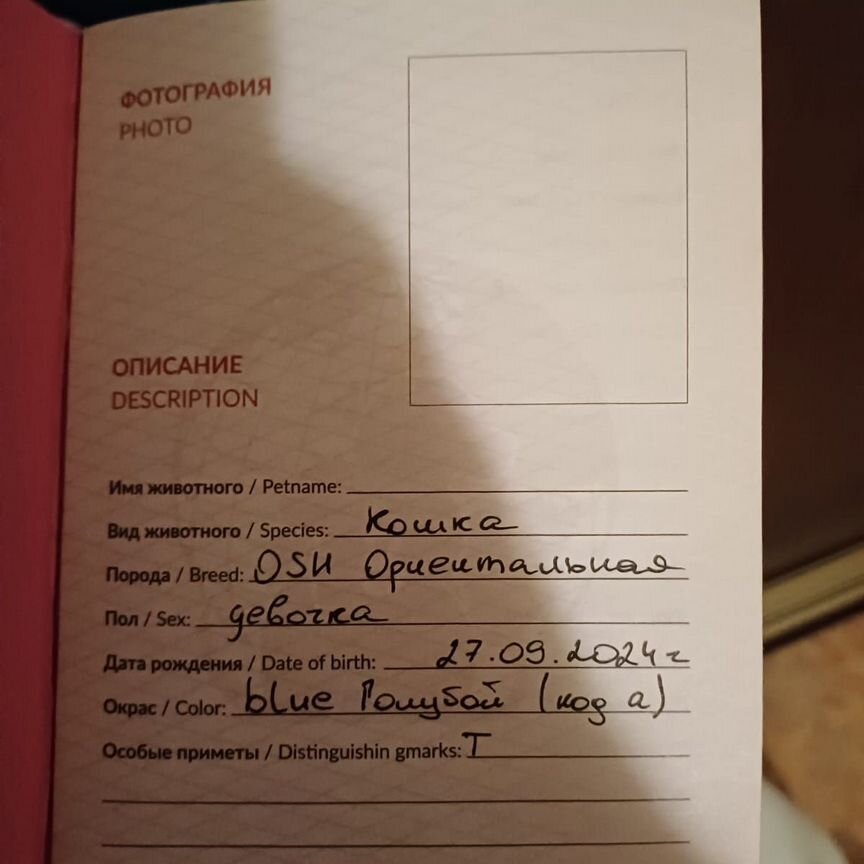 ФОТОГРАФИЯ
PHOTO
ОПИСАНИЕ
DESCRIPTION
Имя животного / Petname:
Вид животного / Species: Кошка
Порода / Breed: OSH Ориентальная
Пол / Sex: девочка
Дата рождения / Date of birth: 27.09.2024 г
Окрас / Color: blue Голубой (код а)
Особые приметы / Distinguishin gmarks: Т